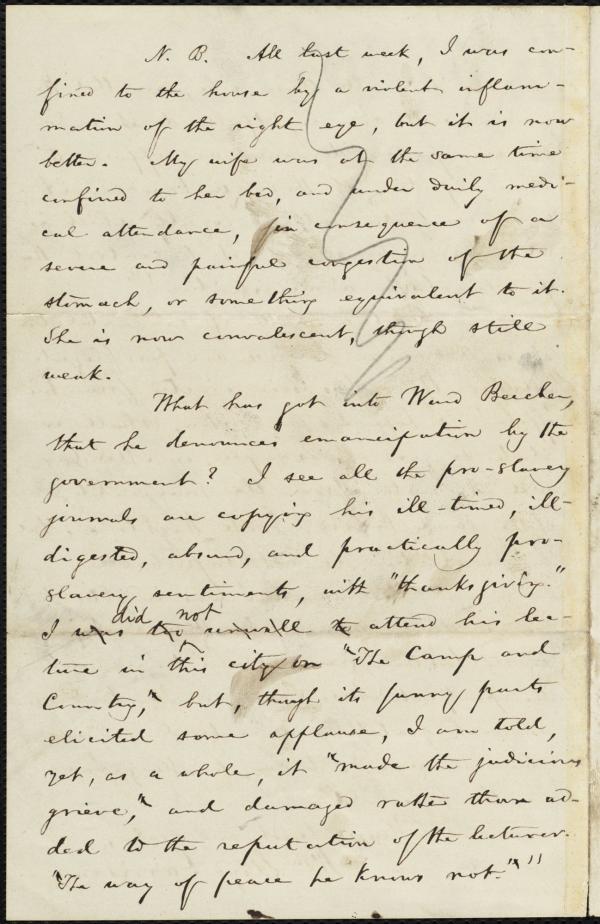 N. B. All last week, I was con-
fined to the house by a violent inflam-
mation of the right eye, but it is now
better. My wife was at the same time
confined to her bed, and under daily medi-
cal attendance, in consequence of a
severe and painful congestion of the
stomach, or something equivalent to it.
She is now convalescent, though still
weak.
What has got into Ward Beecher,
that he denounces emancipation by the
government? I see all the pro-slavery
journals are copying his ill-timed, ill-
digested, absurd, and practically pro-
slavery sentiments, with "thanksgiving."
did not
I was too unwell to attend his lec-
ture in this city on "The Camp and
Country," but, though its funny parts
elicited some applause, I am told,
yet, as a whole, it "made the judicious
grieve," and damaged rather than ad-
ded to the reputation of the lecturer.
"The way of peace he knows not."